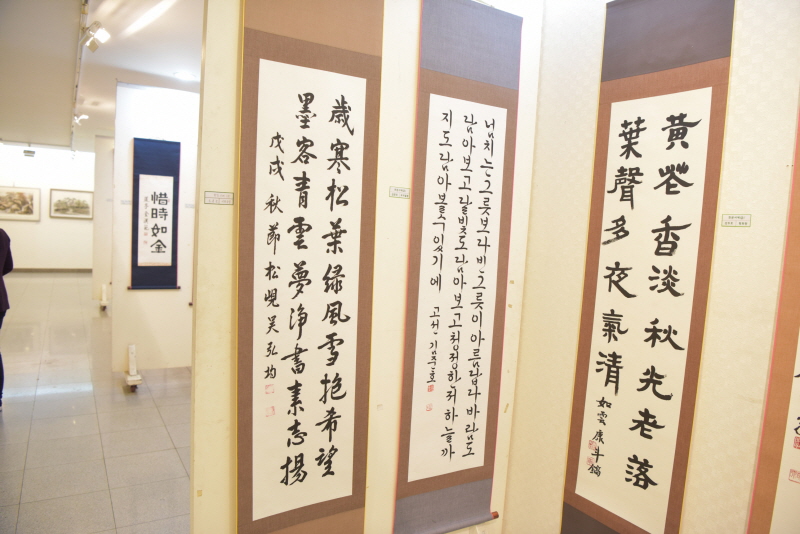 惜時如金
歲寒松葉綠風雪抱希望
墨客青雲夢淨書素志揚
戊戌 秋節 松峴 吳弘均
넘치는 그릇보다 빈 그릇이 아름답다 바람도
담아보고 달빛도 담아보고 청정한 저 하늘까
지도 담아볼 수 있기에 고천 김주호
黃花香淡秋光老落
葉聲多夜氣清 如雲 康斗鎬